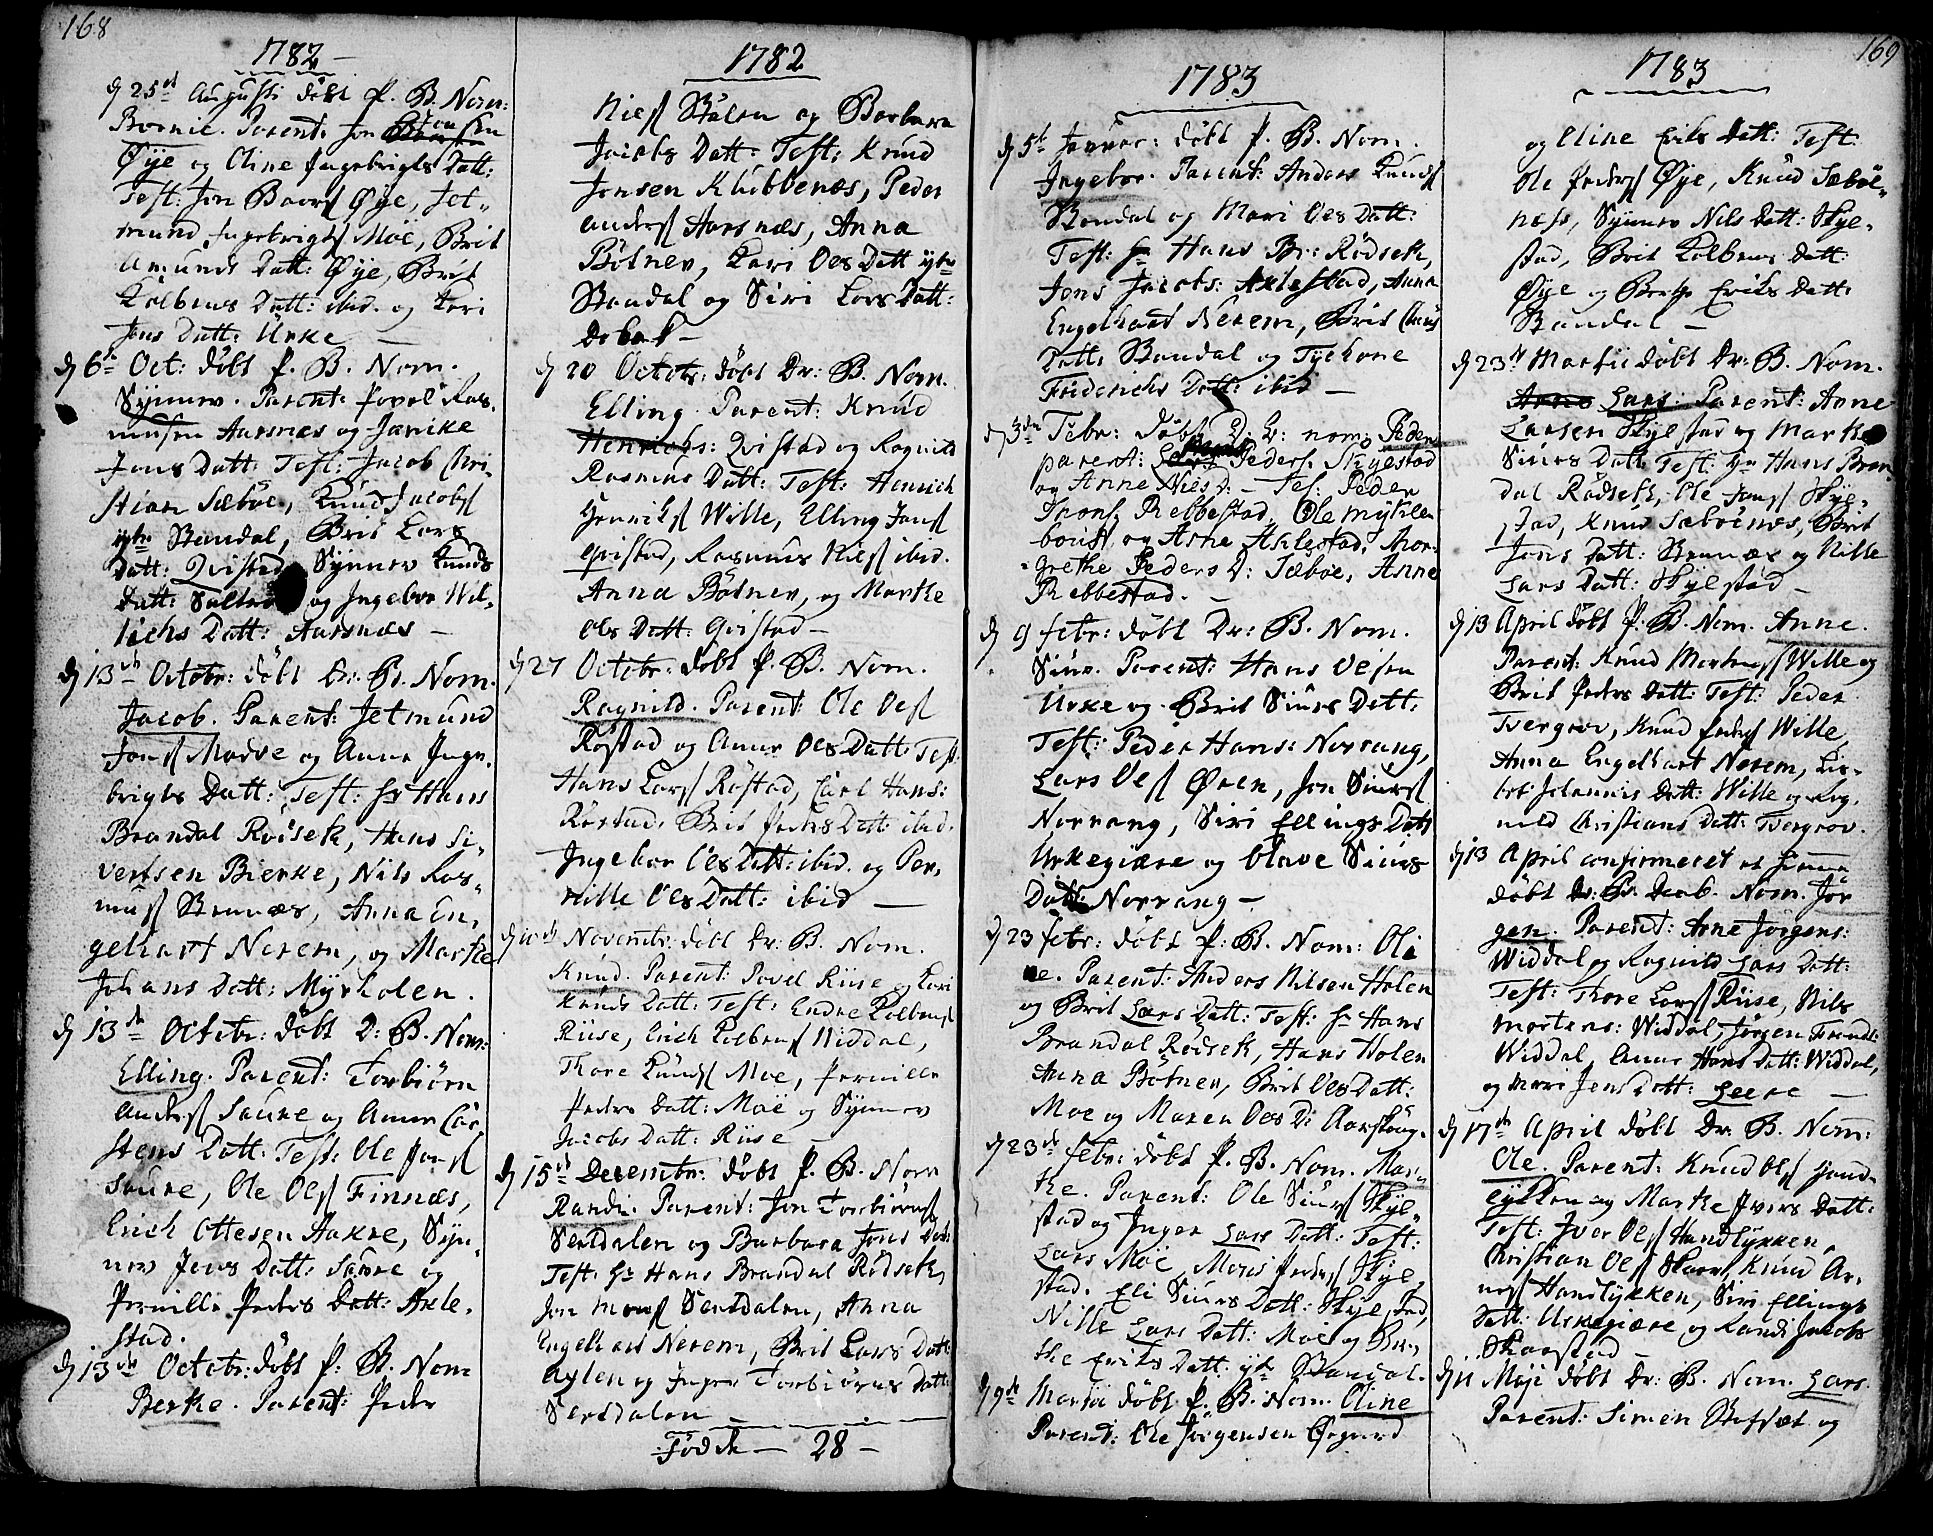 168
1782
d 25de Augusti døbt P. B. Nom:
Bernil. Parent: Jon Jonsen
Øye og Oline Ingebrigts Datt:
Test: Jon Baars Øye, Jet-
mund Ingebrigts Moe, Brit
Amunds Datt: Øye, Brit
Kolbens Datt: ibid. og Kari
Jons Datt: Urke —
d 6te Oct: døbt P. B. Nom.
Synnev. Parent: Povel Ras-
musen Aarsnes og Janike
Jons Datt: Test: Jacob Chri-
stian Sæbøe, Knud Jacobs
ytre Standal, Brit Lars
Datt: Qvistad, Synnev Knuds
Datt: og Ingebor Wil-
lichs Datt: Aarsnæs —
d 13de Octobr: døbt Dr: B. Nom.
Jacob. Parent: Jetmund
Jons Marve og Anne Inge-
brigts Datt: Test: Hr Hans
Brandal Rødsek, Hans Si-
vertsen Bierke, Nils Ras-
mus Stennæs, Anna En-
gelhart Nerem, og Marthe
Johans Datt: Myrholen.
d 13de Octobr: døbt D: B. Nom:
Elling. Parent: Torbiørn
Anders Saure og Anne Car
stens Datt: Test: Ole Jons
Saure, Ole Ols Finnæs,
Erich Ottesen Aakre, Syn-
nev Jens Datt: Saure og
Pernille Peders Datt: Axle-
stad.
d 13de Octobr: døbt P. B. Nom
Berthe. Parent: Peder
1782
Niels Stålen og Barbara
Jacobs Datt: Test: Knud
Jonsen Klubbenæs, Peder
Anders Aarsnæs, Anna
Bøtner, Kari Oles Datt ytre
Standal og Siri Lars Datt:
Dobak —
d 20 Octobr: døbt Dr: B. Nom.
Elling. Parent: Knud
Henrichs: Qvistad og Ragnild
Rasmus Datt: Test: Henrich
Henriks Wille, Elling Jons
Qvistad, Rasmus Niels ibid.
Anna Bøtner, og Marthe
Ols Datt: Qvistad —
d 27 Octobr: døbt P. B. Nom.
Ragnild. Parent: Ole Oels
Røstad og Anne Oles Datt: Test:
Hans Lars Røstad, Carl Hans:
Røstad. Brit Peders Datt: ibid.
Ingebor Oles Datt: ibid. og Per-
nille Oles Datt: ibid —
d 10de Novembr: døbt Dr: B. Nom.
Knud. Parent: Povel Riise og Kari
Knuds Datt: Test: Endre Kolbens
Riise, Erich Kolbens Widdal,
Thore Knuds Moe, Pernille
Peders Datt: Moe og Synnev
Jacobs Datt: Riise —
d 15de Decembr: døbt P. B. Nom
Randi. Parent: Jon Torbiørns
Sertdalen og Barbara Jons Datt:
Test: Hr Hans Brandal Rødsek,
Jon Mons Sertdalen, Anna
Engelhart Nerem, Brit Lars Datt:
Aylen og Inger Torbiørns Datt:
Sertdalen —
Fødde — 28 —
1783
d 5te Januar: døbt P. B. Nom.
Ingebor. Parent: Anders Knuds
Standal og Mari Oles Datt:
Test: Hr Hans Br: Rødsek,
Jons Jacobs: Axlestad, Anna
Engelhart Nerem, Brit Claus
Datt: Standal og Tychone
Friderichs Datt: ibid —
d 3de Febr: døbt D: B: nom. Peder
parent: Peders. Skyestad
og Anne Niels D: — Tes: Peder
Trons. Rebbestad, Ole Myklen
boust og Arne Axlestad, Mar-
grethe Peders D: Sæbøe, Anne
Rebbestad. —
d 9 Febr: døbt Dr: B. Nom.
Siur. Parent: Hans Olsen
Urke og Brit Siurs Datt:
Test: Peder Hans: Norrang,
Lars Oels Øren, Jon Siurs
Norrang, Siri Ellings Datt
Urkegiære og Olave Siurs
Datt: Norrang —
d 23 Febr: døbt P. B. Nom: Oli
ne. Parent: Anders Nilsen Holen
og Brit Lars Datt: Test: Hr Hans
Brandal Rødsek, Hans Holen
Anna Bøtner, Brit Oles Datt:
Moe og Maren Oles D: Aarskoug.
d 23de Febr: døbt P. B. Nom. Mar-
the. Parent: Ole Siurs Skye-
stad og Inger Lars Datt: Test:
Lars Moe, Moris Peders Skye-
stad. Eli Siurs Datt: Skyestad,
Nille Lars Datt: Moe og Ber-
the Eriks Datt: ytr Standal.
d 9de Martii døbt P. B. Nom. Oline
Parent: Ole Jørgensen Øegaard
169
1783
og Eline Eriks Datt: Test:
Ole Peders Øye, Knud Sæbøe-
næss, Synnev Nils Datt: Skye-
stad, Brit Kolbens Datt:
Øye og Berthe Eriks Datt:
Standal —
d 23de Martii døbt Dr: B. Nom.
Arne Lars. Parent: Arne
Larsen Skyestad og Marthe
Siurs Datt: Test: Hr Hans Bran-
dal Rødsek, Ole Jons Skye-
stad, Knud Sæbøenæs, Brit
Jons Datt: Stennæs og Nille
Lars Datt: Skyestad —
d 13 April døbt P. B. Nom. Anne.
Parent: Knud Mortens Wille og
Brit Peders Datt: Test: Peder
Tvergrov, Knud Peders Wille,
Anna Engelhart Nerem, Lis-
bet Johannis Datt: Wille og Rag-
nild Christians Datt: Tvergrov.
d 13 April confirmeret et hiemme
døbt Dr: B. Nom. Jør
gen. Parent: Arne Jørgens:
Widdal og Ragnild Lars Datt:
Test: Thore Lars Riise, Nils
Mortens: Widdal, Jørgen Tronds:
Widdal, Anne Hans Datt: Widdal,
og Mari Jens Datt: Leere —
d 17de April døbt Dr: B. Nom:
Ole. Parent: Knud Ols Hand-
lykken og Marthe Ivers Datt:
Test: Iver Ols Handlykken,
Christian Ols Skaar, Knud Ar-
nes Handlykken, Siri Ellings
Datt: Urkegiære og Randi Jacobs
Skaarstad —
d 11 Maji døbt Dr: B. Nom. Lars.
Parent: Simen Staffset og